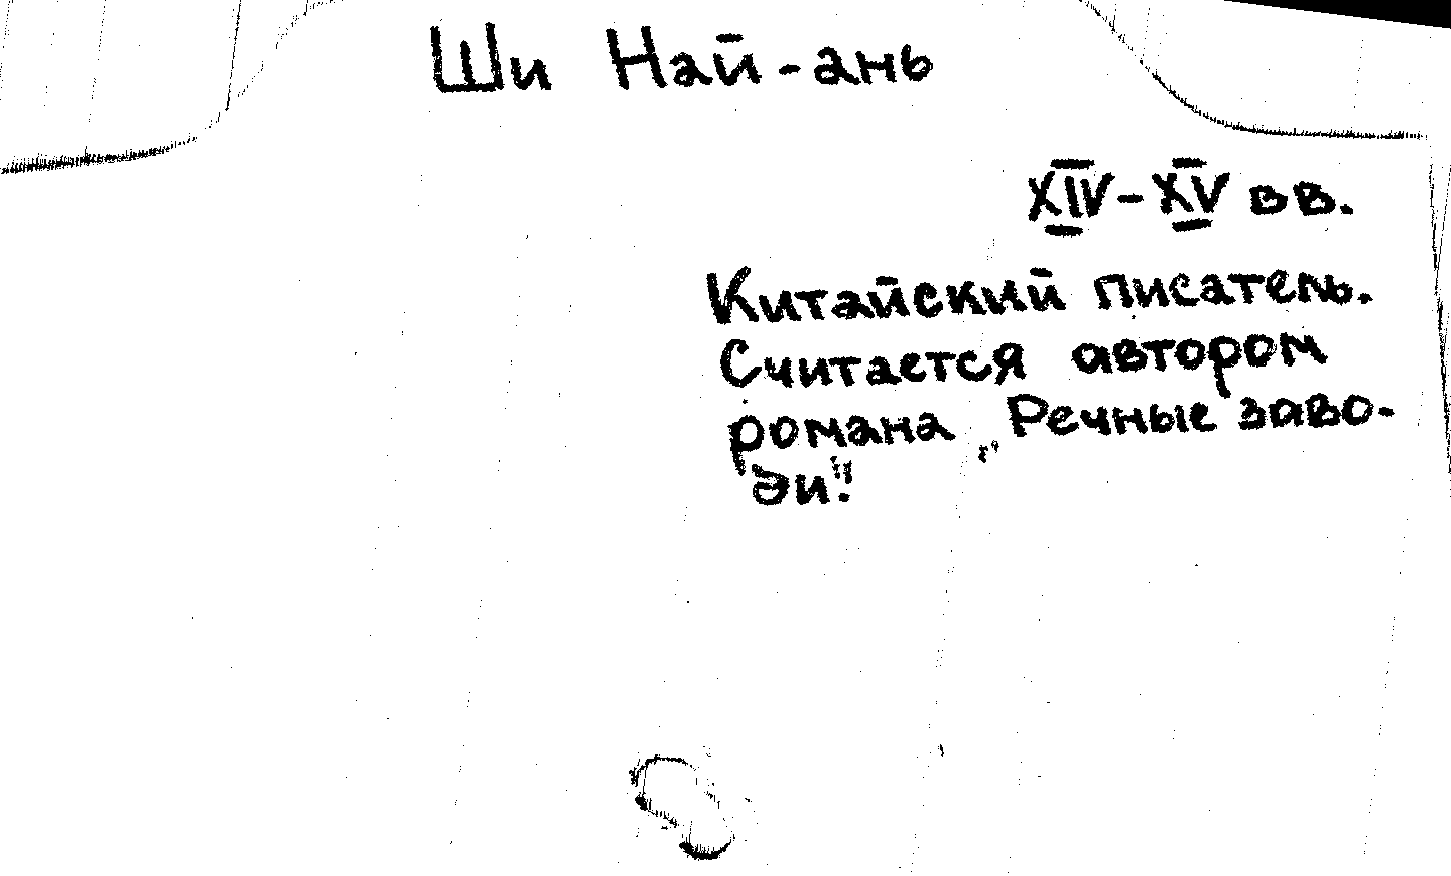 Ши Най-ань
XIV-XV вв.
Китайский писатель.
Считается автором
романа „Речные заво-
ди".